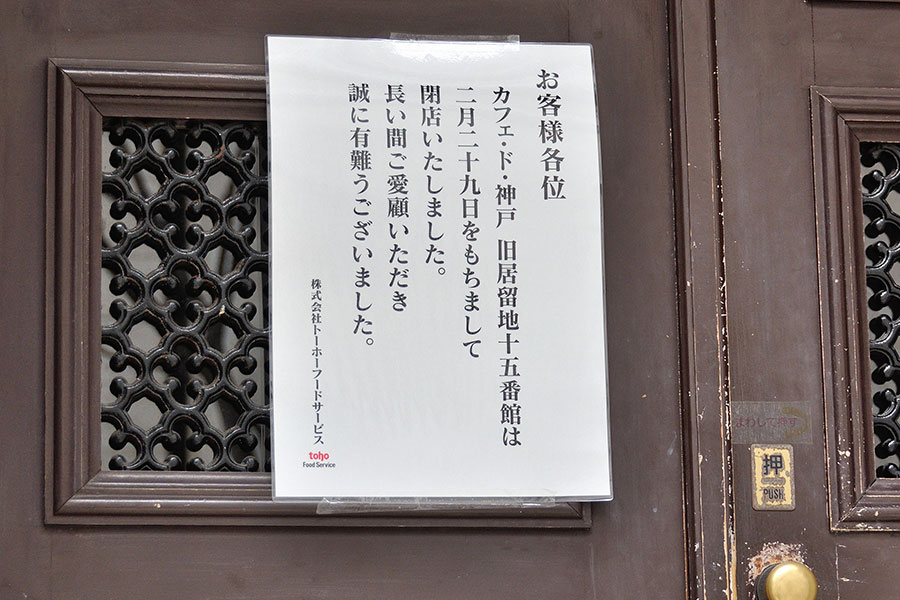 お客様各位
カフェ・ド・神戸 旧居留地十五番館は
二月二十九日をもちまして
閉店いたしました。
長い間ご愛顧いただき
誠に有難うございました。
株式会社トーホーフードサービス
toho
Food Service
まわして押す
押
PUSH